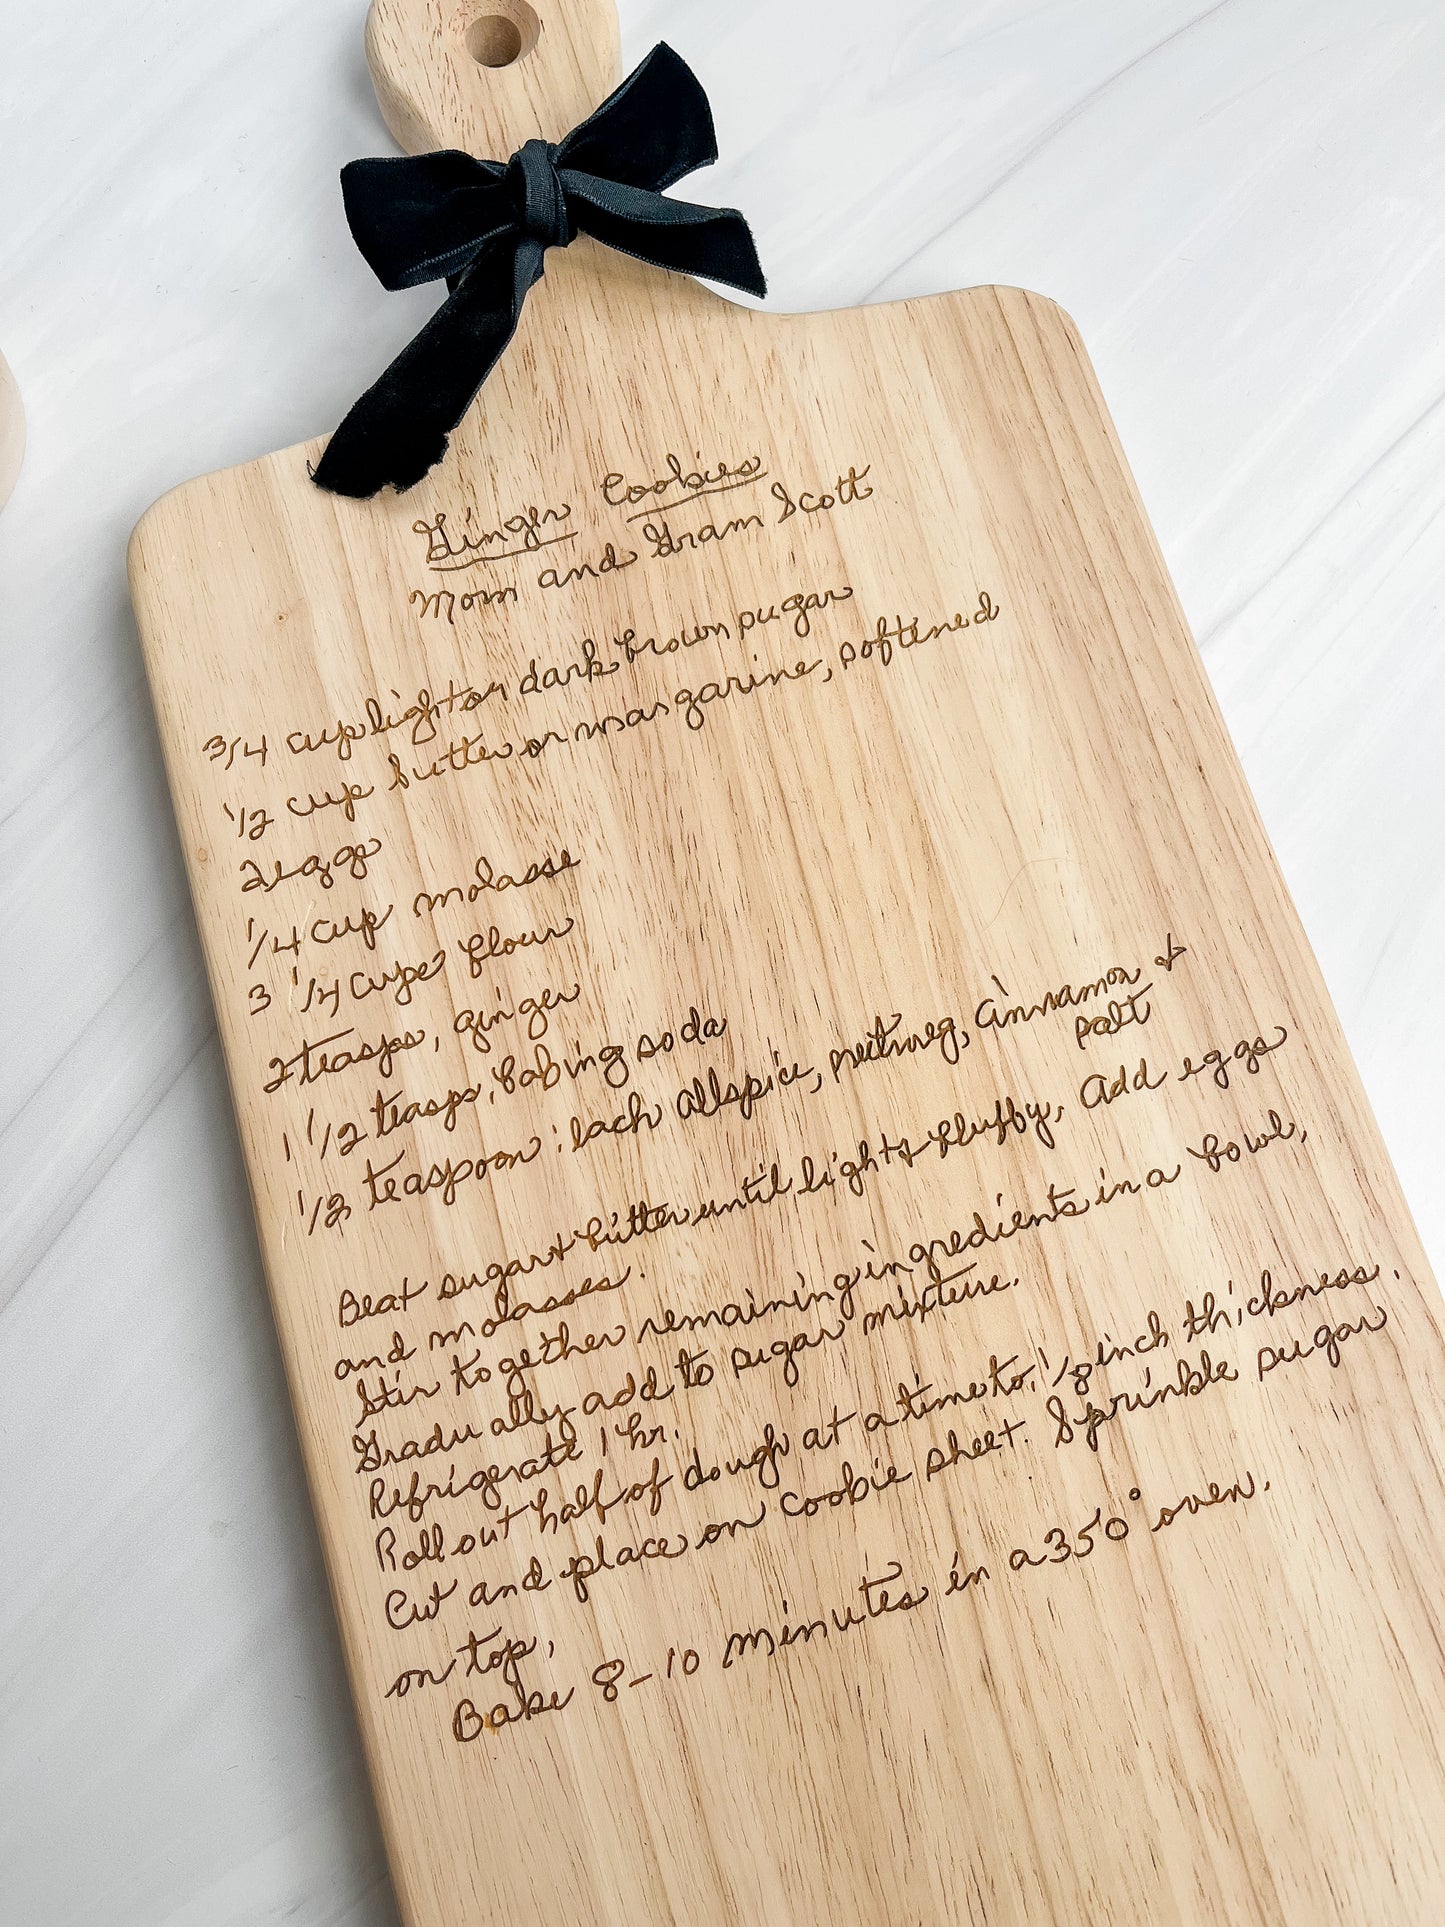 Ginger Cookies
Mom and Gram Scott
3/4 cup light or dark brown sugar
1/2 cup butter or margarine, softened
2 eggs
1/4 cup molasse
3 1/4 cups flour
2 teasps, ginger
1 1/2 teasps, baking soda
1/2 teaspoon: each allspice, nutmeg, cinnamon &
salt
Beat sugar & butter until light & fluffy, Add eggs
and molasses.
Stir together remaining ingredients in a bowl,
Gradually add to sugar mixture.
Refrigerate 1 hr.
Roll out half of dough at a time to, 1/8 inch thickness.
Cut and place on cookie sheet. Sprinkle sugar
on top,
Bake 8-10 minutes in a 350° oven.